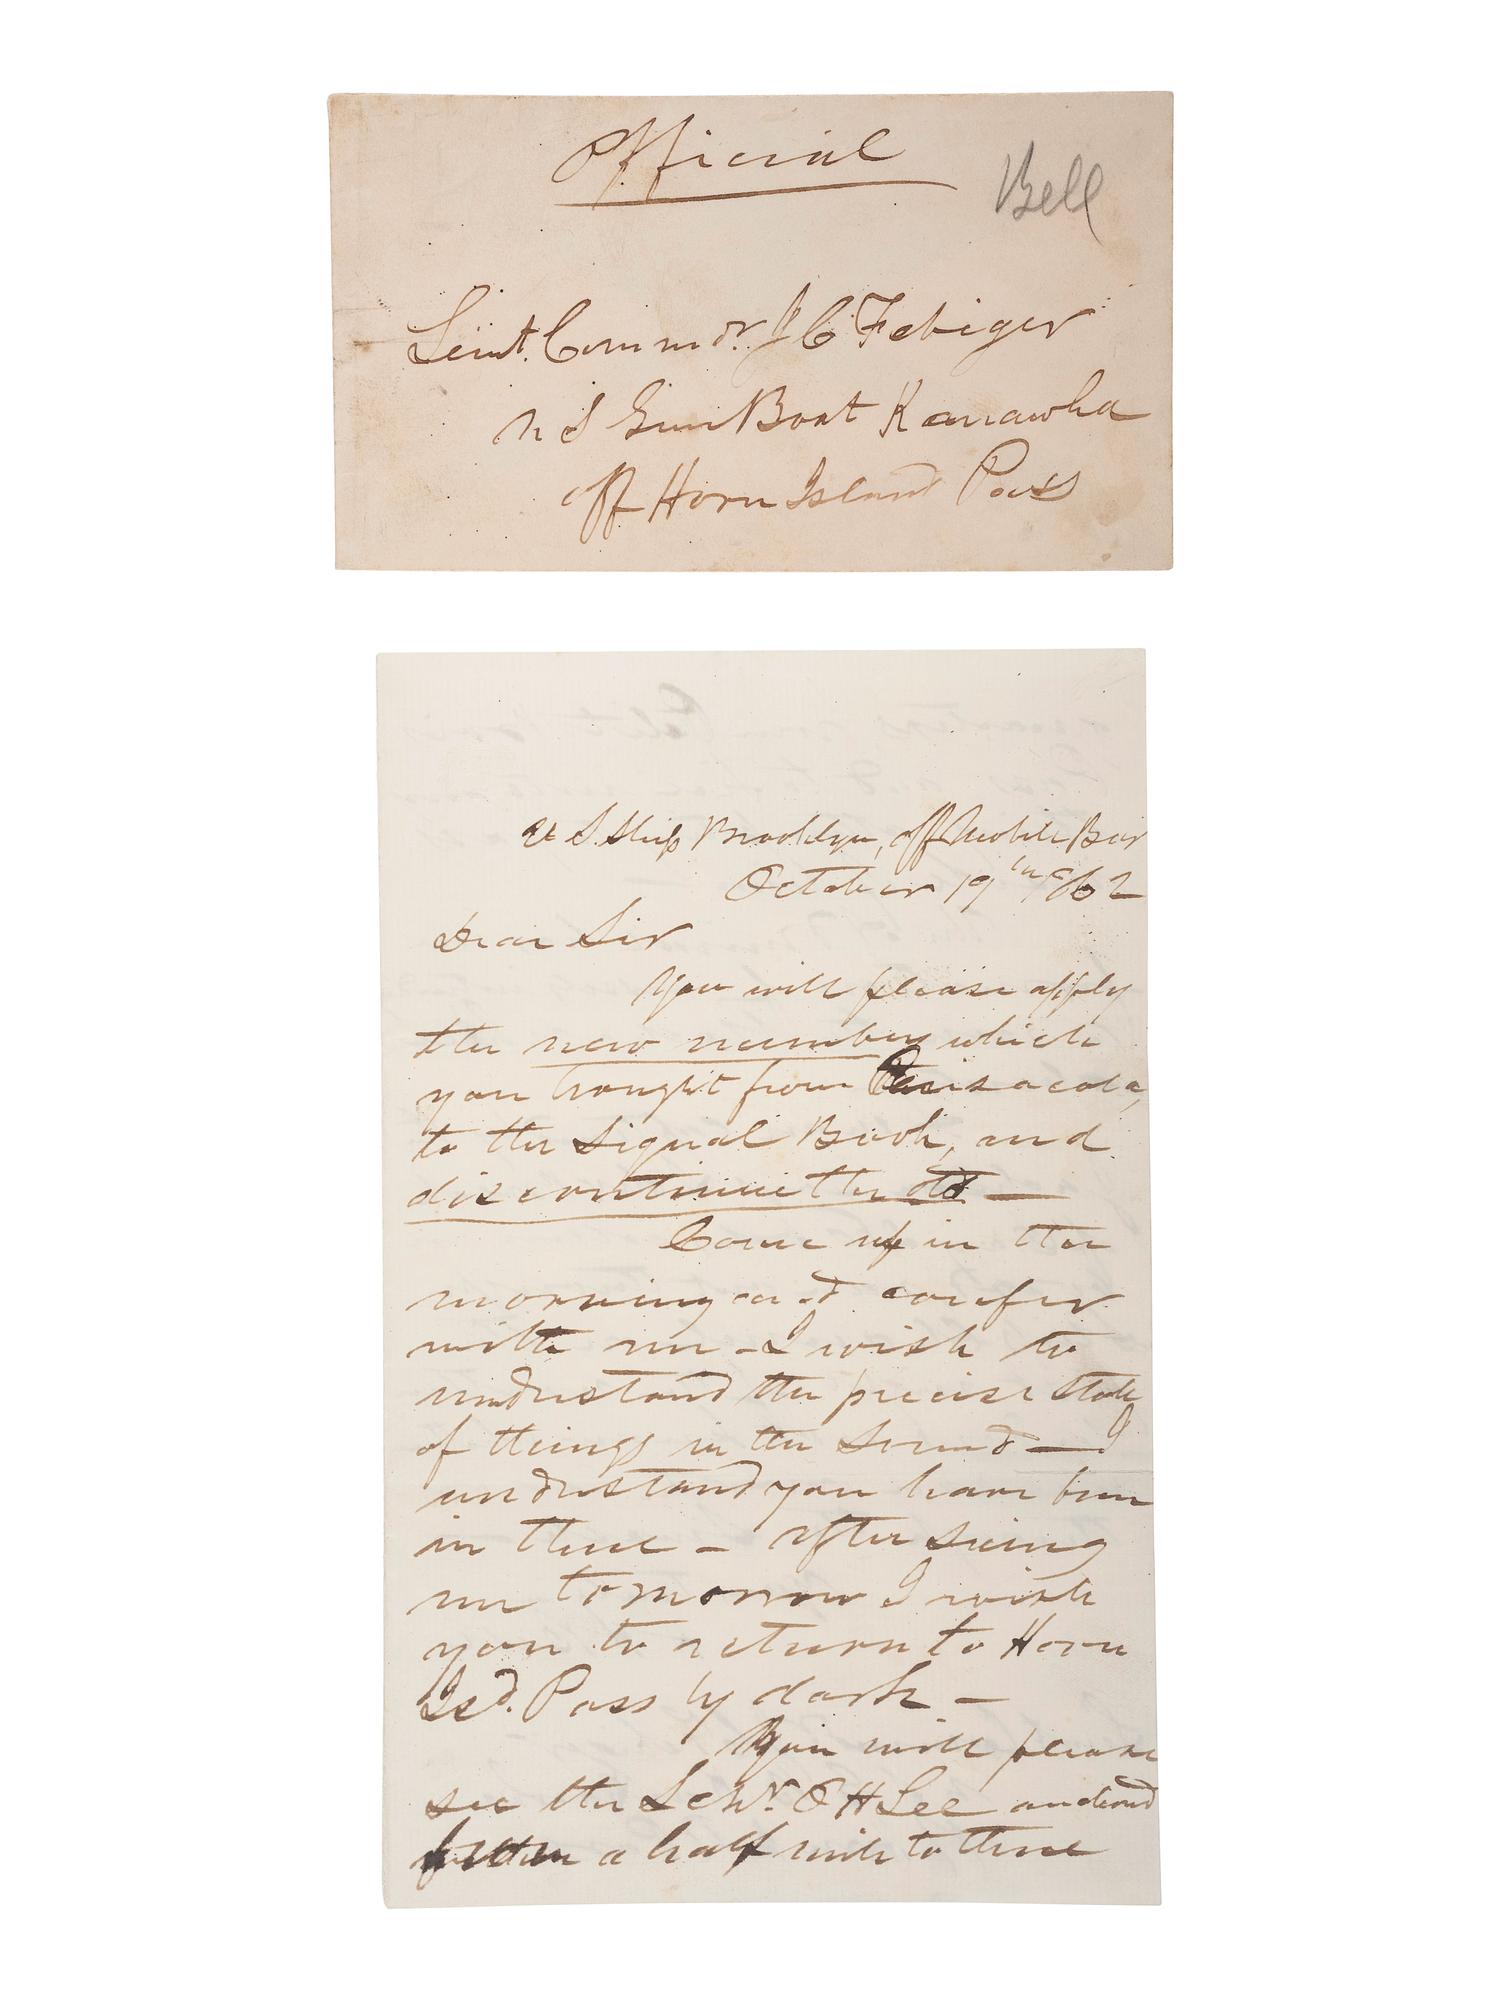 Official
Bell
Lieut. Commdr. J C Febiger
U S Gun Boat Kanawha
off Horn Island Pass
U S. Ship Brooklyn, off Mobile Bar
October 19th 1862
Dear Sir
You will please apply
the new number which
you brought from Pensacola,
to the Signal Book, and
discontinue the old —
Come up in the
morning and confer
with me - I wish to
understand the precise state
of things in the Sound — I
understand you have been
in there - after seeing
me tomorrow I wish
you to return to Horn
Isd. Pass by dark —
You will please
see the Schr. O H Lee anchored
a half mile to three